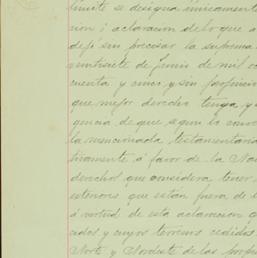 límite se designa únicamente
cion i aclaracion de lo que a
dejó sin precisar la suprema
veintisiete de Junio de mil oc
cuenta y cinco y sin perjuicio
que mejor derecho tenga y a
gencia de que segun lo conve
la mencionada testamentaria
tivamente á favor de la Na
derechos que considera tener
esteriores que están fuera de e
á virtud de esta aclaracion
cidos y cuyos terrenos cedidos
Norte y Nordeste de las